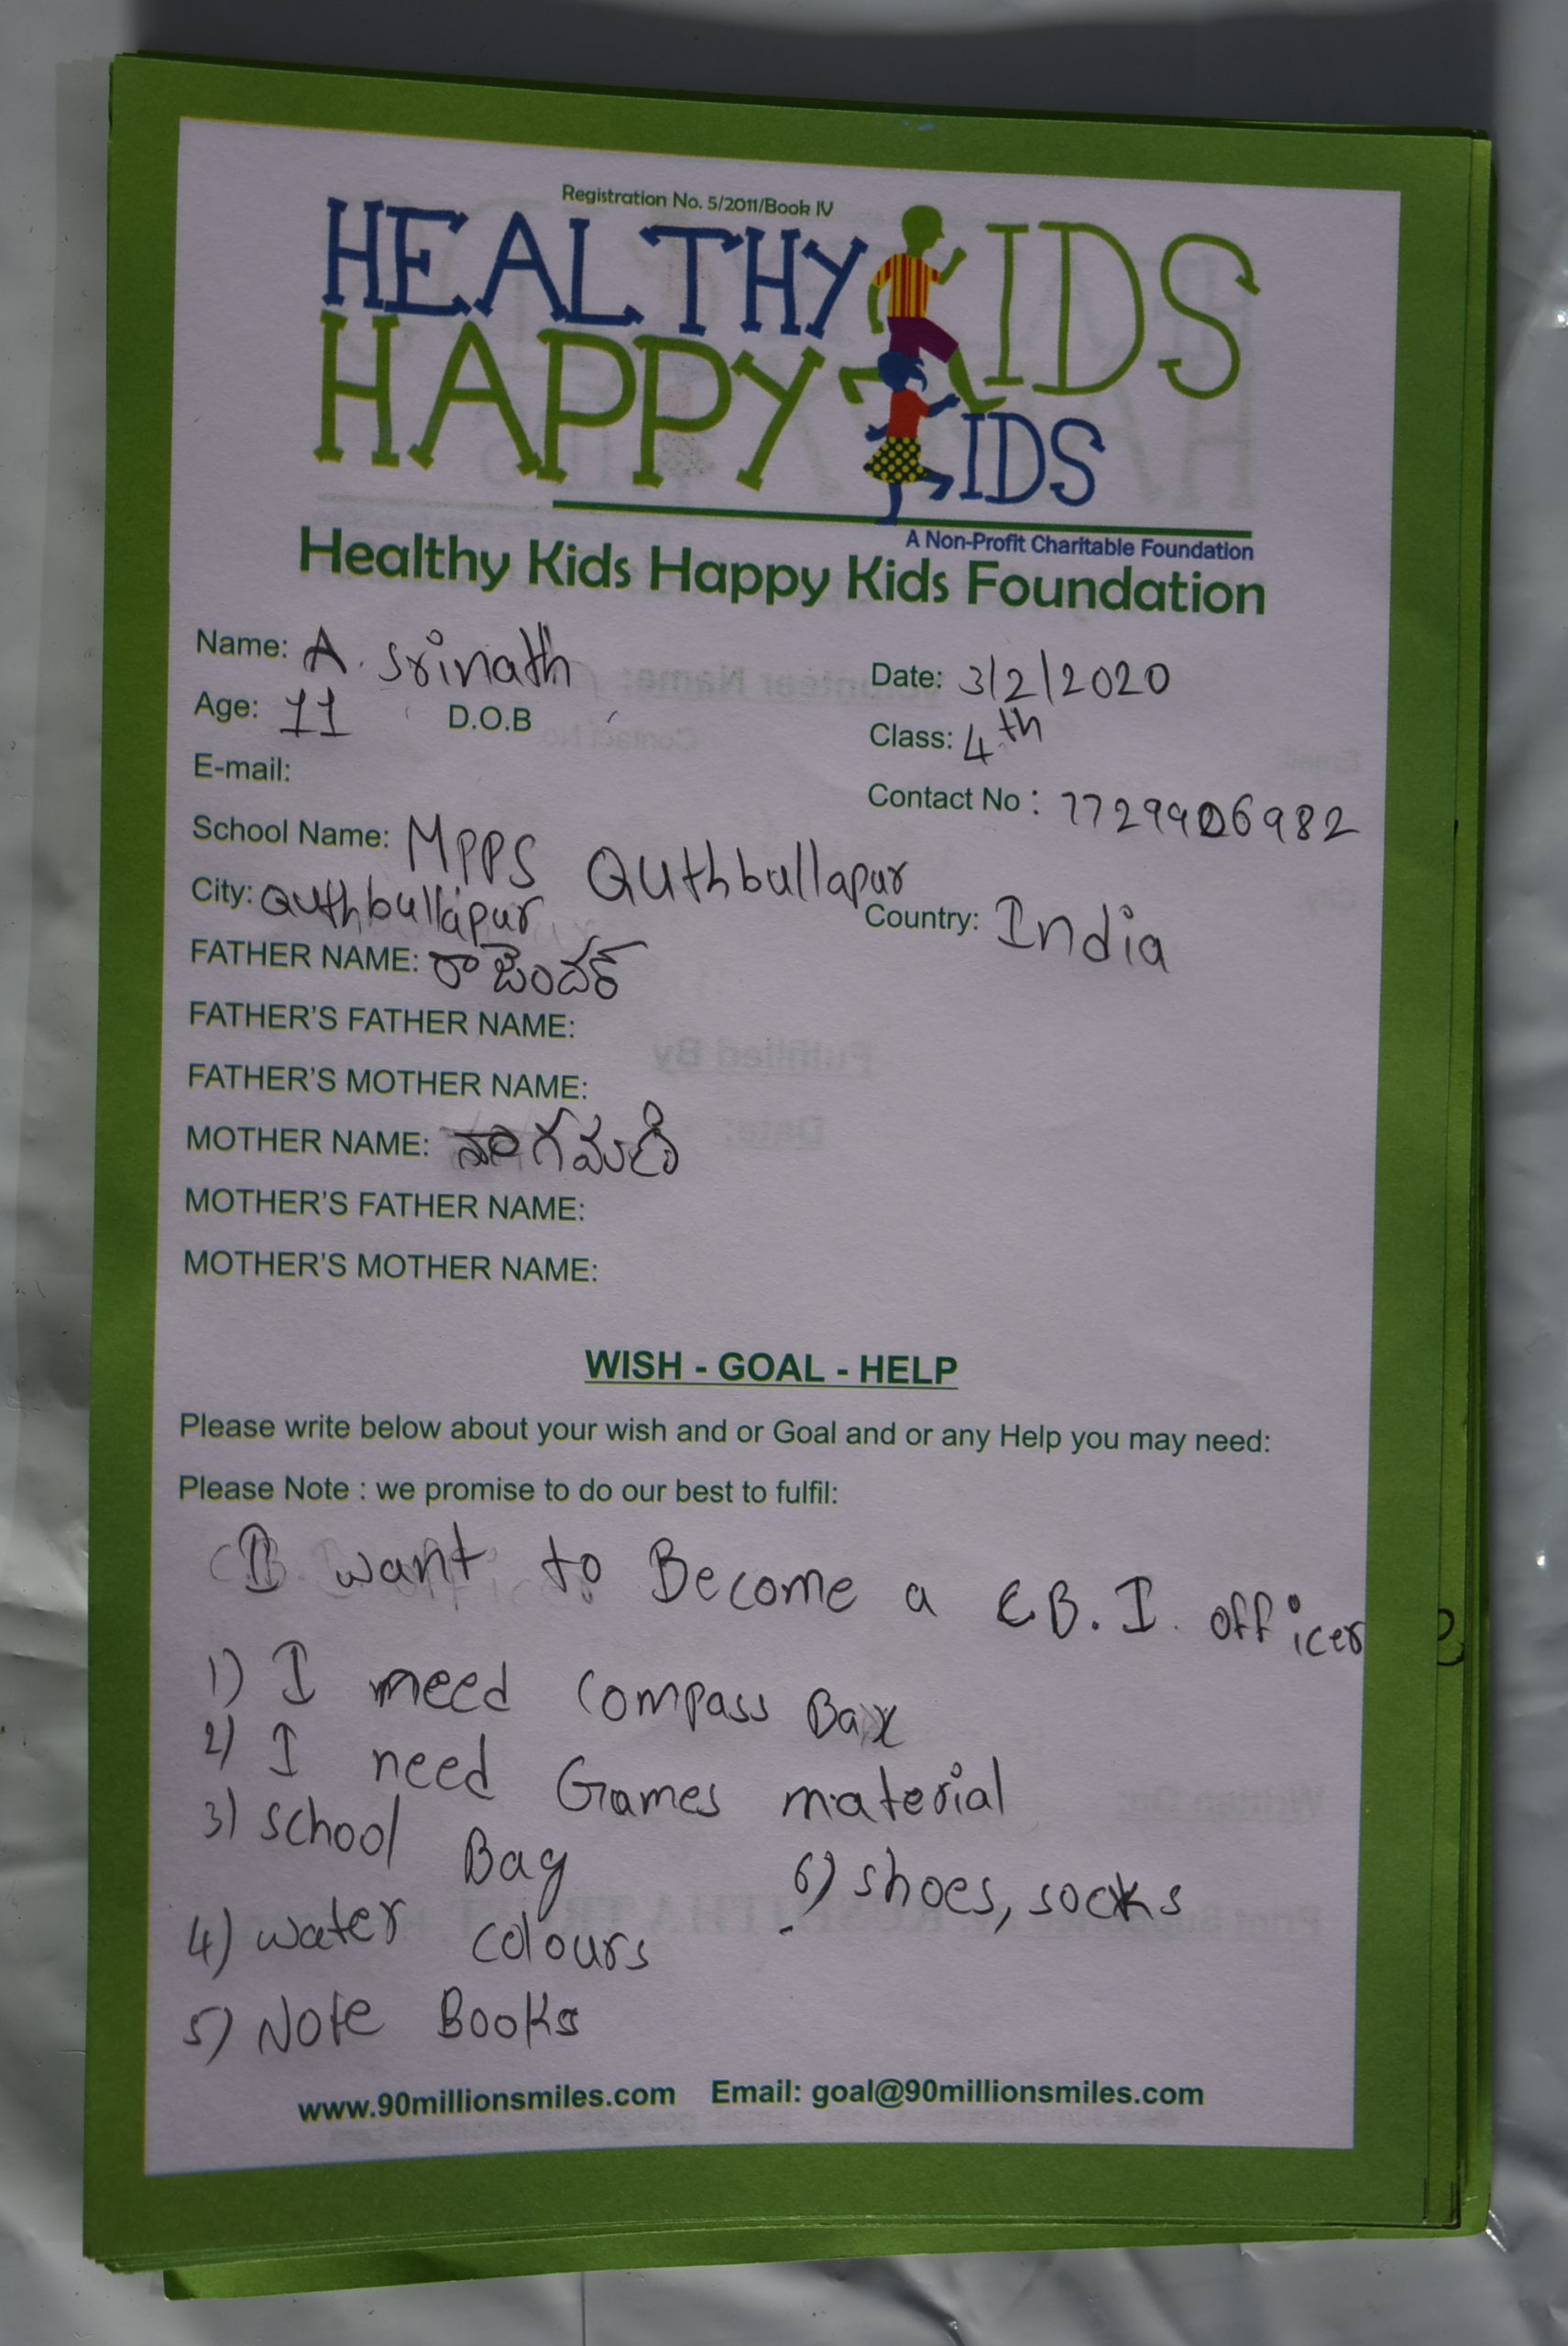 Registration No. 5/2011/Book IV
HEALTHY KIDS
HAPPY KIDS
A Non-Profit Charitable Foundation
Healthy Kids Happy Kids Foundation
Name: A. Srinath
Date: 3/2/2020
Age: 11 D.O.B
Class: 4th
E-mail:
Contact No : 7729906982
School Name: MPPS Quthbullapur
City: Quthbullapur
Country: India
FATHER NAME: రాజెందర్
FATHER'S FATHER NAME:
FATHER'S MOTHER NAME:
MOTHER NAME: నాగమణి
MOTHER'S FATHER NAME:
MOTHER'S MOTHER NAME:
WISH - GOAL - HELP
Please write below about your wish and or Goal and or any Help you may need:
Please Note : we promise to do our best to fulfil:
I want to Become a C.B.I. officer
1) I need compass Box
2) I need Games material
3) school Bag
6) shoes, socks
4) water colours
5) Note Books
www.90millionsmiles.com Email: goal@90millionsmiles.com